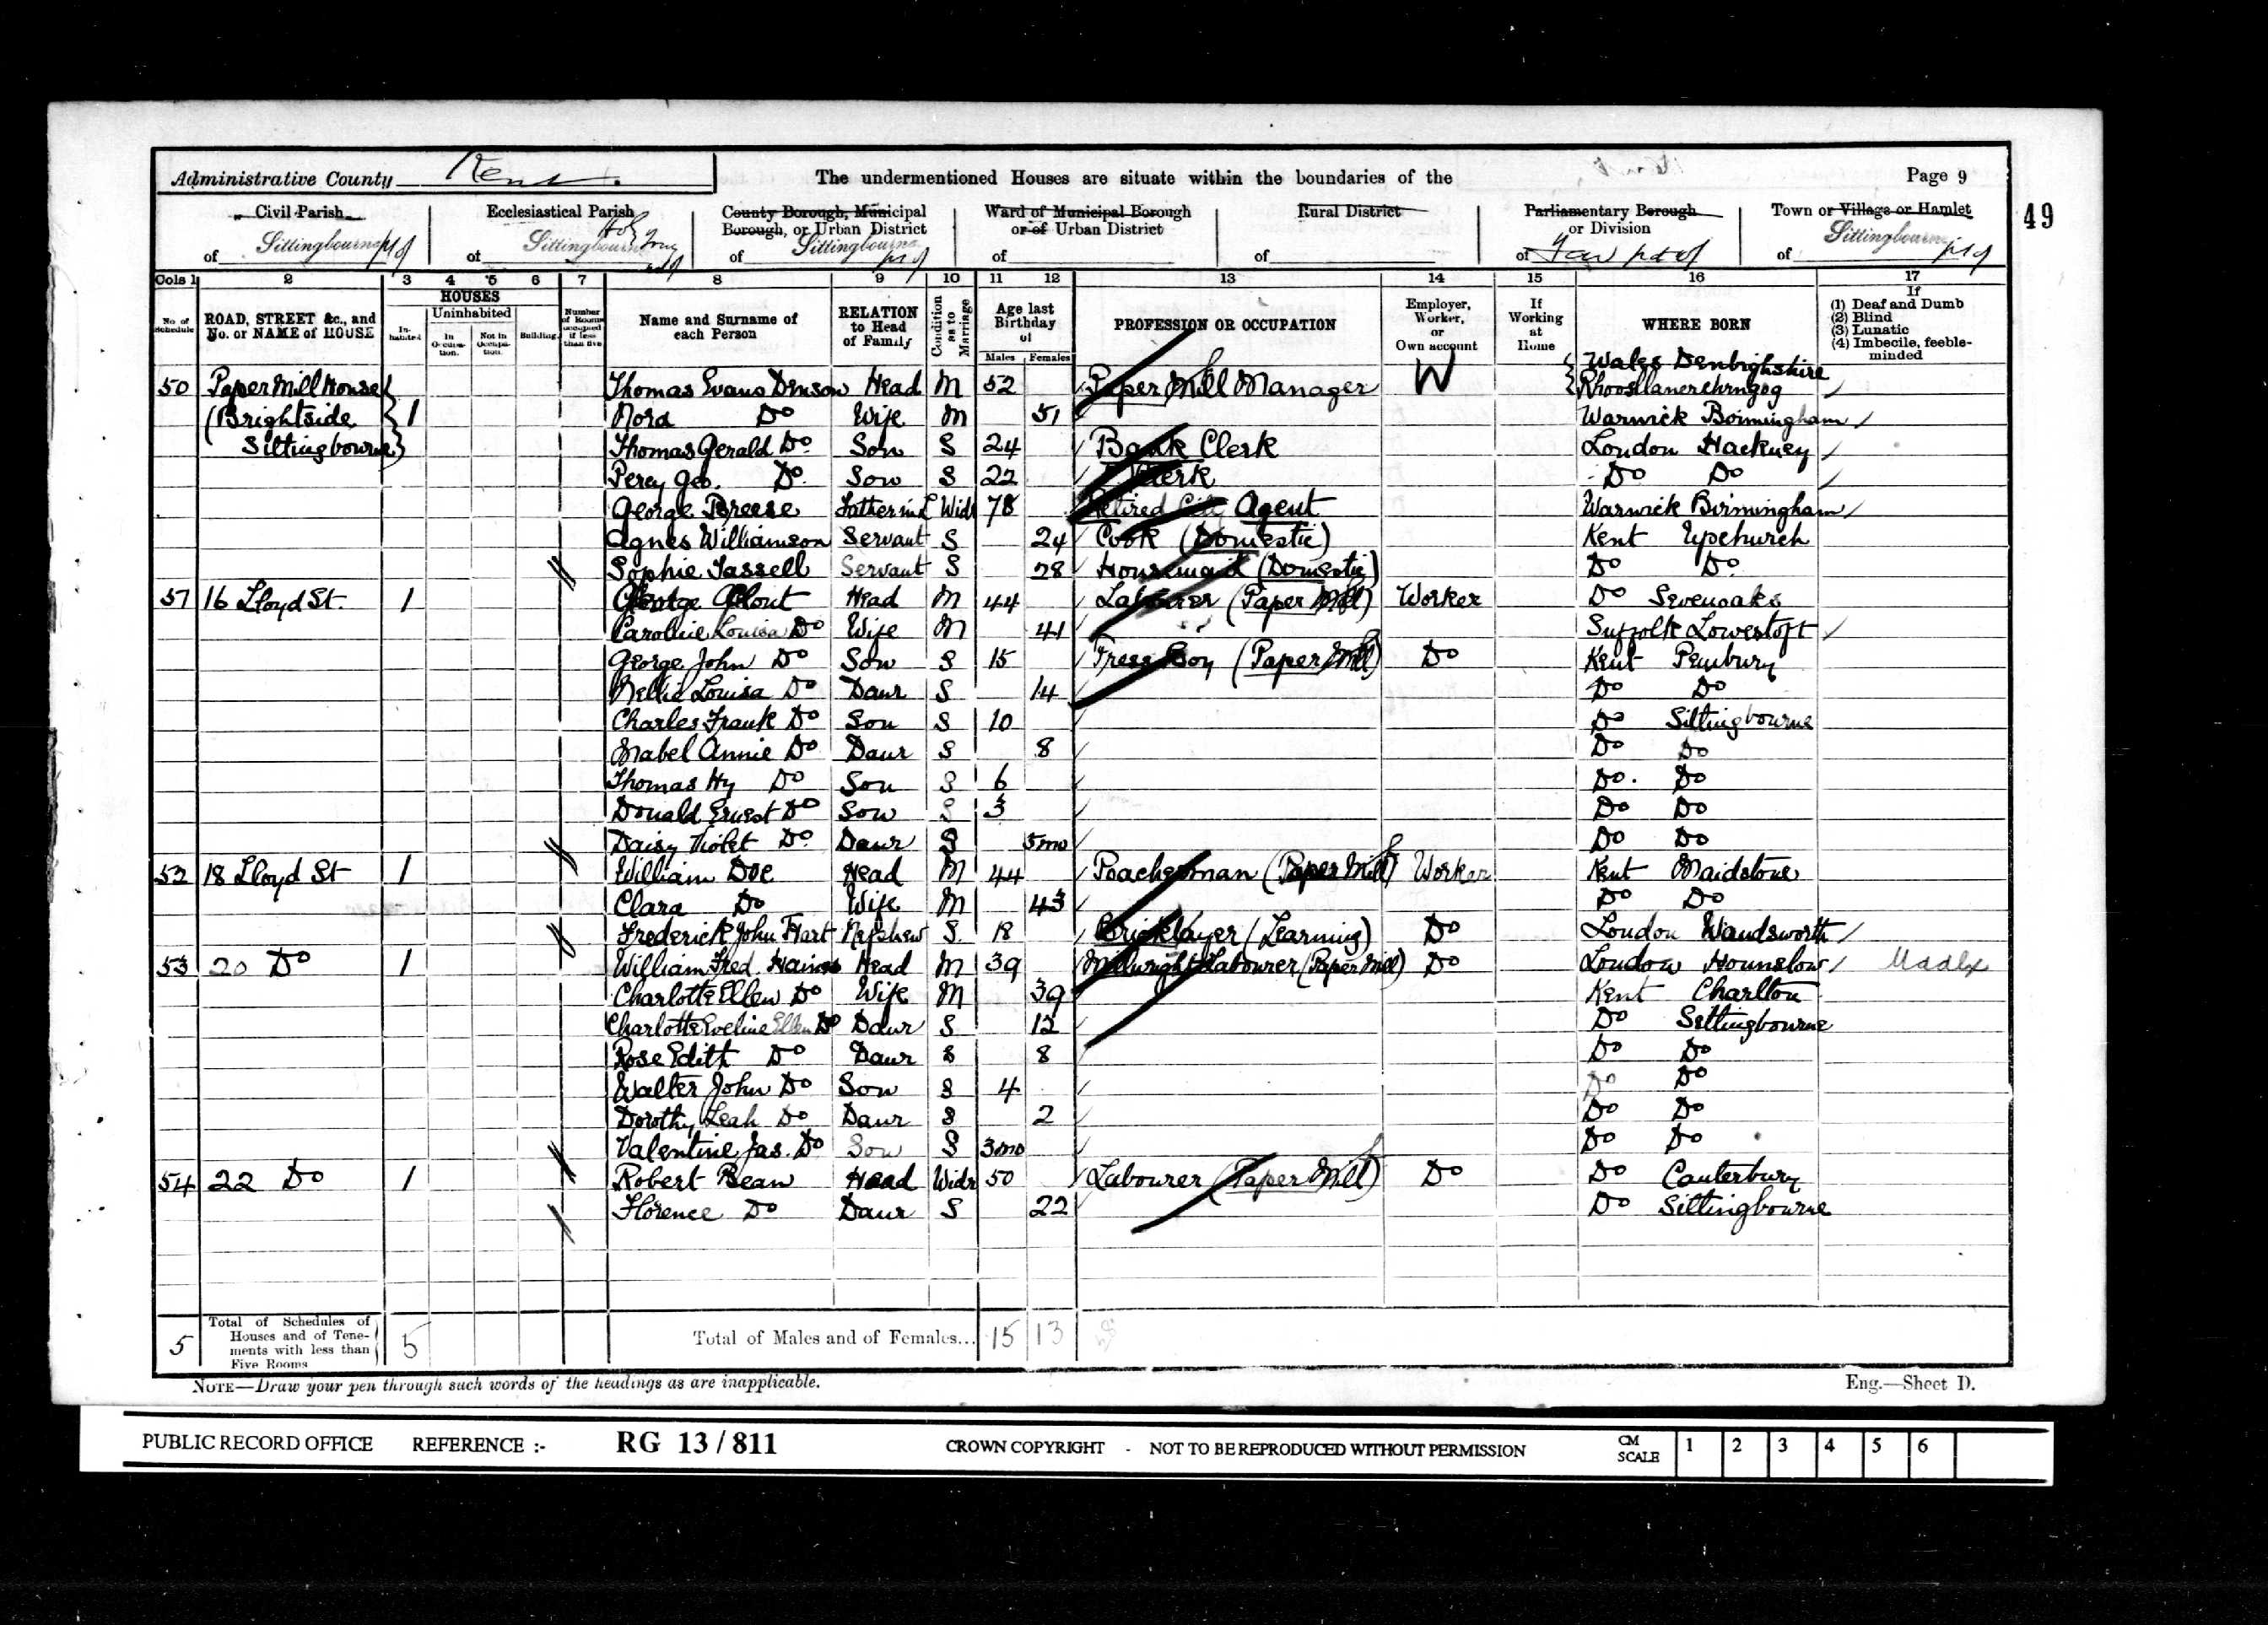 Administrative County Kent. The undermentioned Houses are situate within the boundaries of the Page 9
49
Civil Parish Ecclesiastical Parish County Borough, Municipal Borough, or Urban District Ward of Municipal Borough or of Urban District Rural District Parliamentary Borough or Division Town or Village or Hamlet
of Sittingbourne pt of of Sittingbourne Holy of Sittingbourne pt of of of of pt of of Sittingbourne pt of
Cols 1 2 3 4 5 6 7 8 9 10 11 12 13 14 15 16 17
No. of Schedule ROAD, STREET &c., and No. or NAME of HOUSE HOUSES Inhabited Uninhabited In Occupation. Not in Occupation. Building. Number of Rooms occupied if less than five Name and Surname of each Person RELATION to Head of Family Condition as to Marriage Age last Birthday of Males Females PROFESSION OR OCCUPATION Employer, Worker, or Own account If Working at Home WHERE BORN If (1) Deaf and Dumb (2) Blind (3) Lunatic (4) Imbecile, feeble-minded
Wales Denbighshire
50 Paper Mill House 1 Thomas Evans Denson Head M 52 Paper Mill Manager W
(Brightside Nora Do Wife M 51 Warwick Birmingham
Sittingbourne) Thomas Gerald Do Son S 24 Bank Clerk London Hackney
Percy Geo. Do Son S 22 Clerk Do Do
George Breese Father in L Widr 78 Retired City Agent Warwick Birmingham
Agnes Williamson Servant S 24 Cook (Domestic) Kent Upchurch
Sophie Tassell Servant S 28 Housemaid (Domestic) Do Do
51 16 Lloyd St. 1 George Head M 44 Labourer (Paper Mill) Worker Do Sevenoaks
Caroline Louisa Do Wife M 41 Suffolk Lowestoft
George John Do Son S 15 Press Boy (Paper Mill) Do Kent Pembury
Nellie Louisa Do Daur S 14 Do Do
Charles Frank Do Son S 10 Do Sittingbourne
Mabel Annie Do Daur S 8 Do Do
Thomas Hy Do Son S 6 Do. Do
Donald Ernest Do Son S 3 Do Do
Daisy Violet Do Daur S 5mo Do Do
52 18 Lloyd St 1 William Doe Head M 44 Poacherman (Paper Mill) Worker Kent Maidstone
Clara Do Wife M 43 Do Do
Frederick John Hart Nephew S. 18 Bricklayer (Learning) Do London Wandsworth
53 20 Do 1 William Fred. Haines Head M 39 Millwright Labourer (Paper Mill) Do London Hounslow
Charlotte Ellen Do Wife M 39 Kent Charlton
Charlotte Eveline Ellen Do Daur S 12 Do Sittingbourne
Rose Edith Do Daur S 8 Do Do
Walter John Do Son S 4 Do Do
Dorothy Leah Do Daur S 2 Do Do
Valentine Jas. Do Son S 3mo Do Do
54 22 Do 1 Robert Bean Head Widr 50 Labourer (Paper Mill) Do Do Canterbury
Florence Do Daur S 22 Do Sittingbourne
5 Total of Schedules of Houses and of Tenements with less than Five Rooms 5 Total of Males and of Females... 15 13
NOTE—Draw your pen through such words of the headings as are inapplicable. Eng.—Sheet D.
PUBLIC RECORD OFFICE REFERENCE :- RG 13/811 CROWN COPYRIGHT - NOT TO BE REPRODUCED WITHOUT PERMISSION CM SCALE 1 2 3 4 5 6